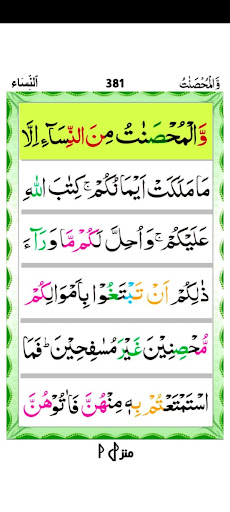 وَّالْمُحْصَنٰتُ 381 اَلنِّسَآء
وَّالْمُحْصَنٰتُ مِنَ النِّسَآءِ اِلَّا
مَا مَلَكَتْ اَيْمَانُكُمْ ۚ كِتٰبَ اللّٰهِ
عَلَيْكُمْ ۚ وَاُحِلَّ لَكُمْ مَّا وَرَآءَ
ذٰلِكُمْ اَنْ تَبْتَغُوْا بِاَمْوَالِكُمْ
مُّحْصِنِيْنَ غَيْرَ مُسٰفِحِيْنَ ؕ فَمَا
اسْتَمْتَعْتُمْ بِهٖ مِنْهُنَّ فَاٰتُوْهُنَّ
منزل ١